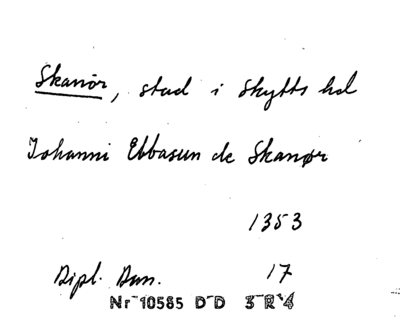 Skanör, stad i Skytts hd
Johanni Ebbasun de Skanør
1353
Dipl. Dan. 17
Nr 10585 D D 3 R 4